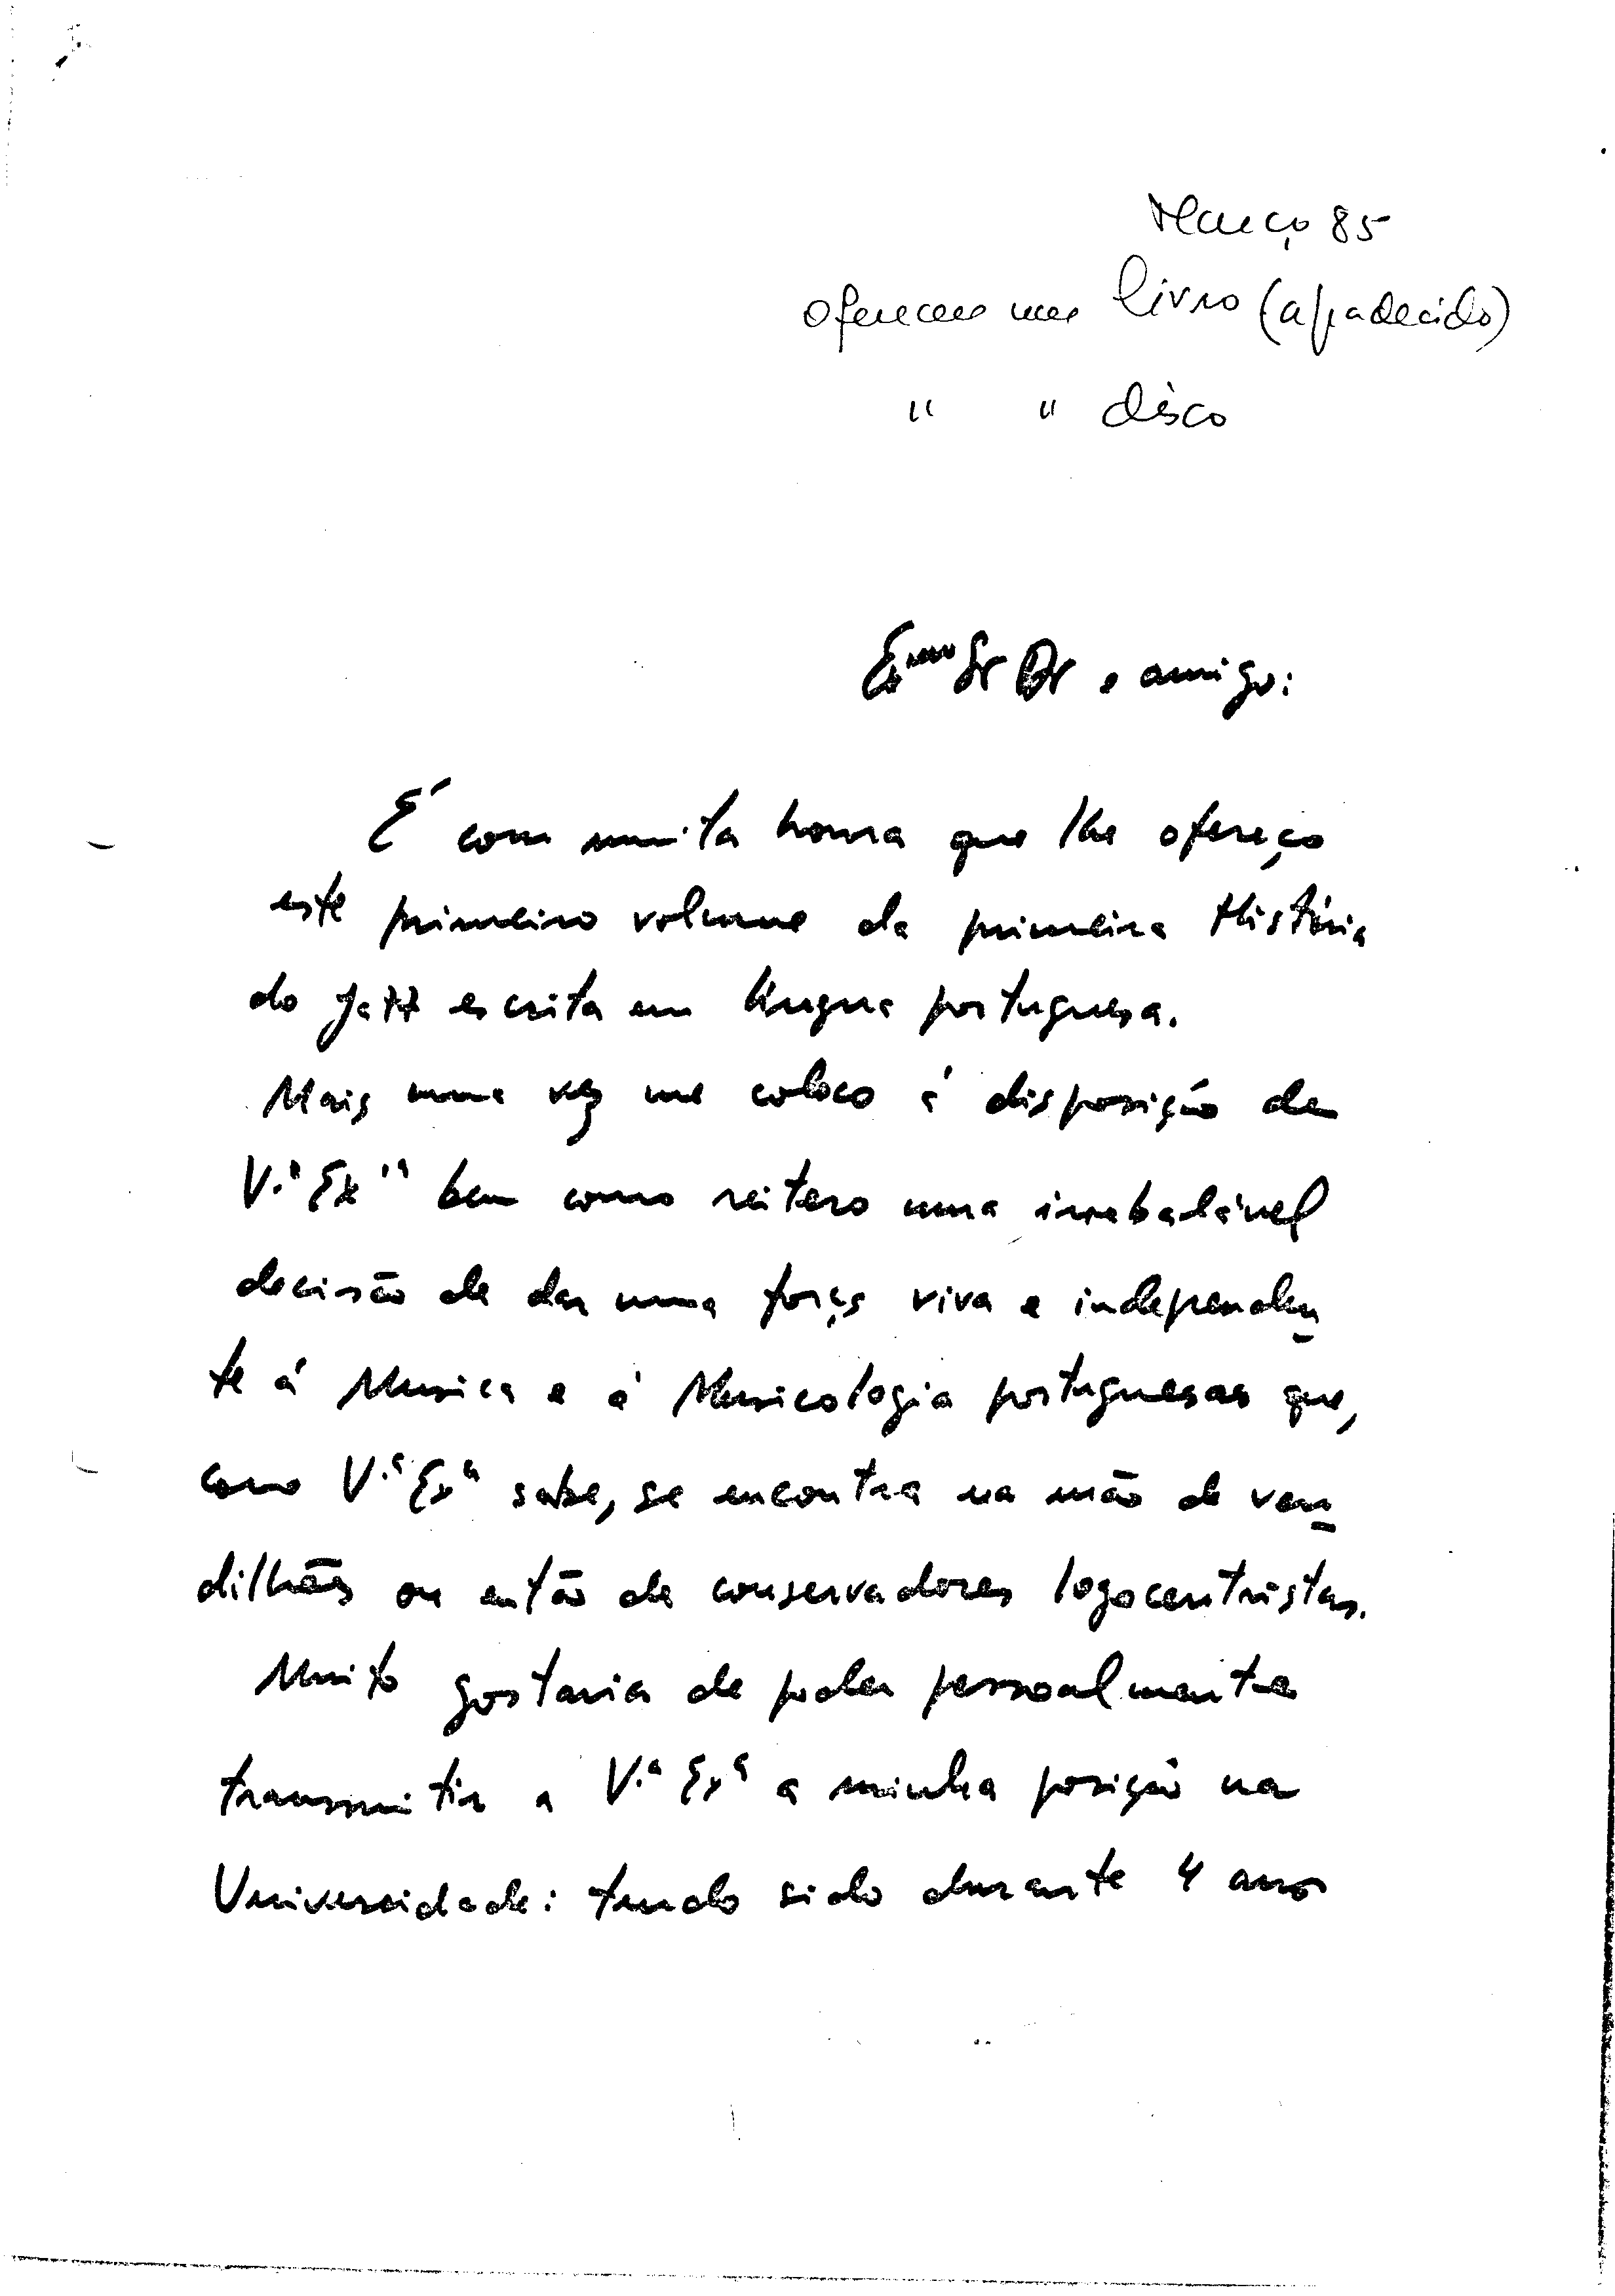 Março 85
ofereceu um livro (agradecido)
" " disco
Exmo Sr Dr e amigo:
É com muita honra que lhe ofereço
este primeiro volume da primeira História
do Jazz escrita em língua portuguesa.
Mais uma vez me coloco á disposição de
V.ª Exª bem como reitero uma inabalável
decisão de dar uma força viva e independen
te á Musica e á Musicologia portuguesas que,
como V.ª Exª sabe, se encontra na mão de ven
dilhões ou então de conservadores logocentristas.
Muito gostaria de poder pessoalmente
transmitir a V.ª Exª a minha posição na
Universidade: tendo sido durante 4 anos